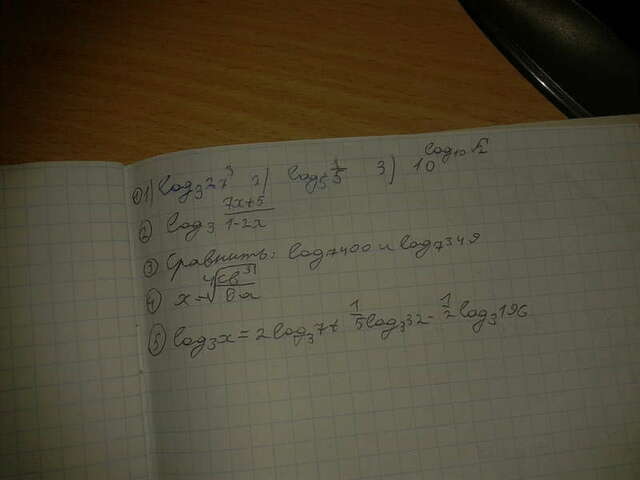 ① 1) log₃27³ 2) log₅ 1/5 3) 10^(log₁₀ √2)
② log₃ (7x+5)/(1-2x)
③ Сравнить: log₇400 и log₇349
④ x =
⑤ log₃x = 2log₃7 + 1/5 log₃32 - 1/2 log₃196